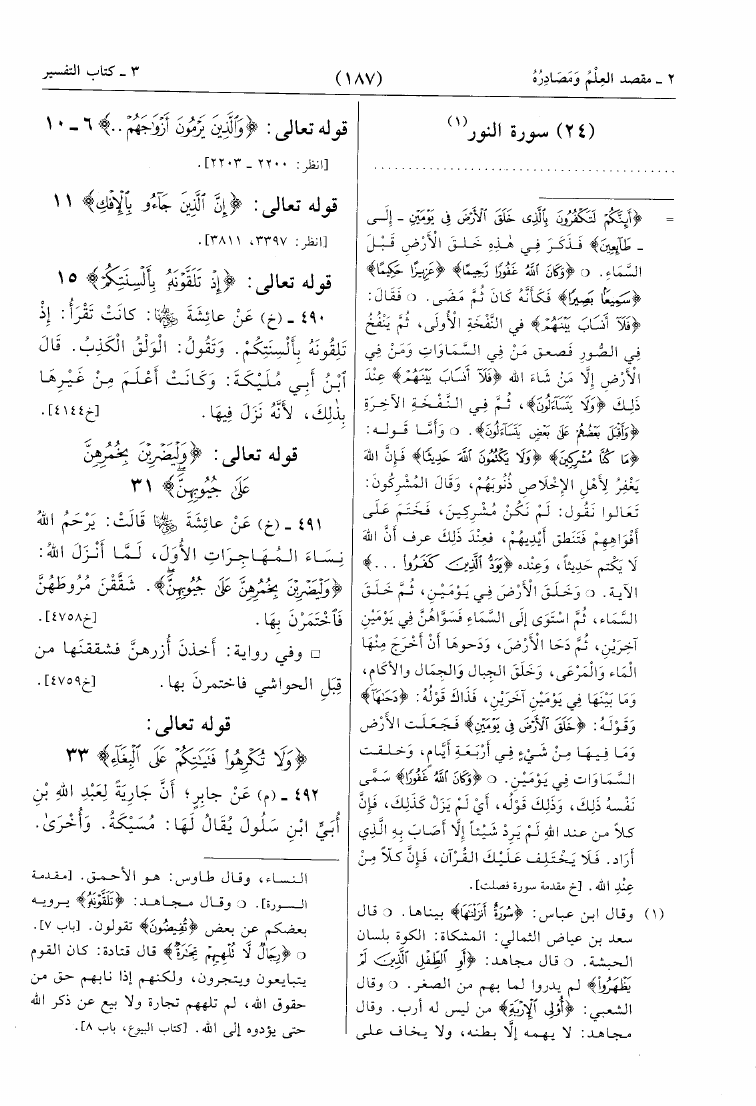 ٢ ـ مقصد العِلْمُ وَمَصَادِرُهُ
(١٨٧)
٣ ـ كتاب التفسير
(٢٤) سورة النور(١)
................................................
= ﴿أَئِنَّكُمْ لَتَكْفُرُونَ بِالَّذِى خَلَقَ الْأَرْضَ فِى يَوْمَيْنِ ـ إلـى
ـ طَآئِعِينَ﴾ فَذَكَرَ فِـي هٰذِهِ خَلْقَ الْأَرْضِ قَبْلَ
السَّمَاءِ. ○ ﴿وَكَانَ اللَّهُ غَفُورًا رَّحِيمًا﴾ ﴿عَزِيزًا حَكِيمًا﴾
﴿سَمِيعًا بَصِيرًا﴾ فَكَأَنَّهُ كَانَ ثُمَّ مَضَى. ○ فَقَالَ:
﴿فَلَآ أَنسَابَ بَيْنَهُمْ﴾ في النَّفْخَةِ الْأُولَى، ثُمَّ يَنْفُخُ
فِي الصُّورِ فَصعق مَنْ فِي السَّمَاوَاتِ وَمَنْ فِي
الْأَرْضِ إِلَّا مَنْ شَاءَ الله ﴿فَلَآ أَنسَابَ بَيْنَهُمْ﴾ عِنْدَ
ذٰلِكَ ﴿وَلَا يَتَسَآءَلُونَ﴾، ثُمَّ فِي النَّفْخَةِ الْآخِرَةِ
﴿وَأَقْبَلَ بَعْضُهُمْ عَلَى بَعْضٍ يَتَسَآءَلُونَ﴾. ○ وَأَمَّا قَوْلُه:
﴿مَا كُنَّا مُشْرِكِينَ﴾ ﴿وَلَا يَكْتُمُونَ اللَّهَ حَدِيثًا﴾ فَإِنَّ اللهَ
يَغْفِرُ لِأَهْلِ الإِخْلَاصِ ذُنُوبَهُمْ، وَقَالَ المُشْرِكُونَ:
تَعَالَوا نَقُولُ: لَمْ نَكُنْ مُشْرِكِينَ، فَخَتَمَ عَلَى
أَفْوَاهِهِمْ فَتَنطق أَيْدِيهِمْ، فَعِنْدَ ذَلِكَ عرف أَنَّ اللهَ
لَا يَكتم حَدِيثاً، وَعِنْده ﴿يَوَدُّ الَّذِينَ كَفَرُوا ...﴾
الآية. ○ وَخَلَقَ الْأَرْضَ فِـي يَـوْمَيْنِ، ثُـمَّ خَلَقَ
السَّمَاءَ، ثُمَّ اسْتَوَى إِلَى السَّمَاءِ فَسَوَّاهُنَّ فِي يَوْمَيْنِ
آخِرَيْنِ، ثُمَّ دَحَا الْأَرْضَ، وَدَحوهَا أَنْ أَخْرَجَ مِنْهَا
الْمَاءَ وَالْمَرْعَى، وَخَلَقَ الْجِبالَ وَالجِمَالَ والآكَامَ،
وَمَا بَيْنَهَا فِي يَوْمَيْنِ آخَرَيْنِ، فَذَاكَ قَوْلُهُ: ﴿دَحَىٰهَآ﴾
وَقَوْلُهُ: ﴿خَلَقَ الْأَرْضَ فِى يَوْمَيْنِ﴾ فَجَعَلَتِ الْأَرْضِ
وَمَا فِيهَا مِنْ شَيْءٍ فِي أَرْبَعَةِ أَيَّامٍ، وَخلقت
السَّمَاوات فِي يَوْمَيْنِ. ○ ﴿وَكَانَ اللَّهُ غَفُورًا﴾ سَمَّى
نَفْسَهُ ذٰلِكَ، وَذٰلِكَ قَوْلُه، أَيْ لَمْ يَزَلْ كَذٰلِكَ، فَإِنَّ
كلاً من عند اللهِ لَمْ يَرِدْ شَيْئاً إِلَّا أَصَابَ بِهِ الَّذِي
أَرَاد. فَلَا يَخْتَلِف عَلَيْكَ القُرْآن، فَإِنَّ كلاً مِنْ
عِنْدِ اللهِ. [خ مقدمة سورة فصلت].
(١) وقال ابن عباس: ﴿سُورَةٌ أَنزَلْنَٰهَا﴾ بيناها. ○ قال
سعد بن عياض الثمالي: المشكاة: الكوة بلسان
الحبشة. ○ قال مجاهد: ﴿أَوِ الطِّفْلِ الَّذِينَ لَمْ
يَظْهَرُوا﴾ لم يدروا لما بهم من الصغر. ○ وقال
الشعبي: ﴿أُوْلِى الْإِرْبَةِ﴾ من ليس له أرب. وقال
مجاهد: لا يهمه إلَّا بطنه، ولا يخاف على
قوله تعالى: ﴿وَالَّذِينَ يَرْمُونَ أَزْوَٰجَهُمْ..﴾ ٦ ـ ١٠
[انظر: ٢٢٠٠ ـ ٢٢٠٣].
قوله تعالى: ﴿إِنَّ الَّذِينَ جَآءُو بِالْإِفْكِ﴾ ١١
[انظر: ٣٣٩٧، ٣٨١١].
قوله تعالى: ﴿إِذْ تَلَقَّوْنَهُ بِأَلْسِنَتِكُمْ﴾ ١٥
٤٩٠ ـ (خ) عَنْ عائِشَةَ رضي الله عنها: كانَتْ تَقْرَأُ: إِذْ
تَلِقُونَهُ بِأَلْسِنَتِكُمْ. وَتَقُولُ: الْوَلْقُ الْكَذِبُ. قَالَ
ابْنُ أَبِي مُلَيْكَةَ: وَكانَتْ أَعْلَمَ مِنْ غَيْرِهَا
بِذٰلِكَ، لأَنَّهُ نَزَلَ فِيهَا. [خ٤١٤٤].
قوله تعالى: ﴿وَلْيَضْرِبْنَ بِخُمُرِهِنَّ
عَلَىٰ جُيُوبِهِنَّ﴾ ٣١
٤٩١ ـ (خ) عَنْ عائِشَةَ رضي الله عنها قالَتْ: يَرْحَمُ اللهُ
نِسَاءَ المُهَاجِرَاتِ الأُوَلَ، لَمَّا أَنْزَلَ اللهُ:
﴿وَلْيَضْرِبْنَ بِخُمُرِهِنَّ عَلَىٰ جُيُوبِهِنَّ﴾. شَقَّقْنَ مُرُوطَهُنَّ
فَاخْتَمَرْنَ بِهَا. [خ٤٧٥٨].
□ وفي رواية: أخذنَ أُزرهنَّ فشققنَها من
قِبَلِ الحواشي فاختمرنَ بها. [خ٤٧٥٩].
قوله تعالى:
﴿وَلَا تُكْرِهُوا فَتَيَٰتِكُمْ عَلَى الْبِغَآءِ﴾ ٣٣
٤٩٢ ـ (م) عَنْ جابِرٍ؛ أَنَّ جَارِيَةً لِعَبْدِ اللهِ بْنِ
أُبَيٍّ ابْنِ سَلُولَ يُقَالُ لَهَا: مُسَيْكَةُ. وَأُخْرَىٰ.
النساء، وقال طاوس: هو الأحمق. [مقدمة
السورة]. ○ وقال مجاهد: ﴿تَلَقَّوْنَهُ﴾ يرويه
بعضكم عن بعض ﴿تُفِيضُونَ﴾ تقولون. [باب ٧].
○ ﴿رِجَالٌ لَّا تُلْهِيهِمْ تِجَٰرَةٌ﴾ قال قتادة: كان القوم
يتبايعون ويتجرون، ولكنهم إذا نابهم حق من
حقوق الله، لم تلههم تجارة ولا بيع عن ذكر الله
حتى يؤدوه إلى الله. [كتاب البيوع، باب ٨].